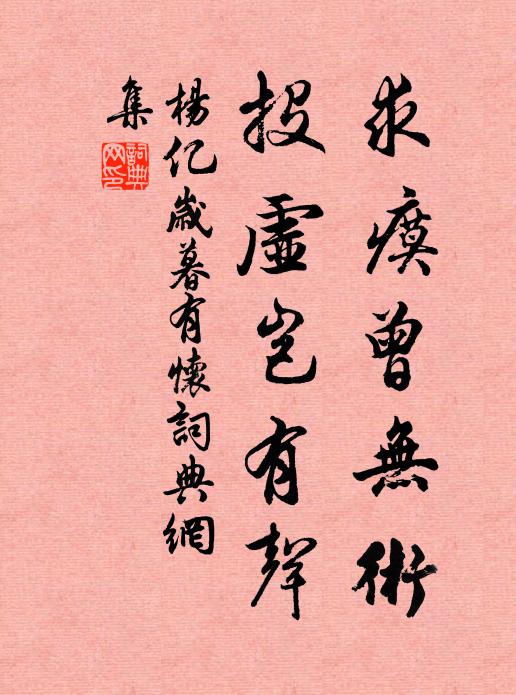 求瘼曾無術
投虛豈有聲
楊億歲暮有懷詞典網
集
詞典
网印